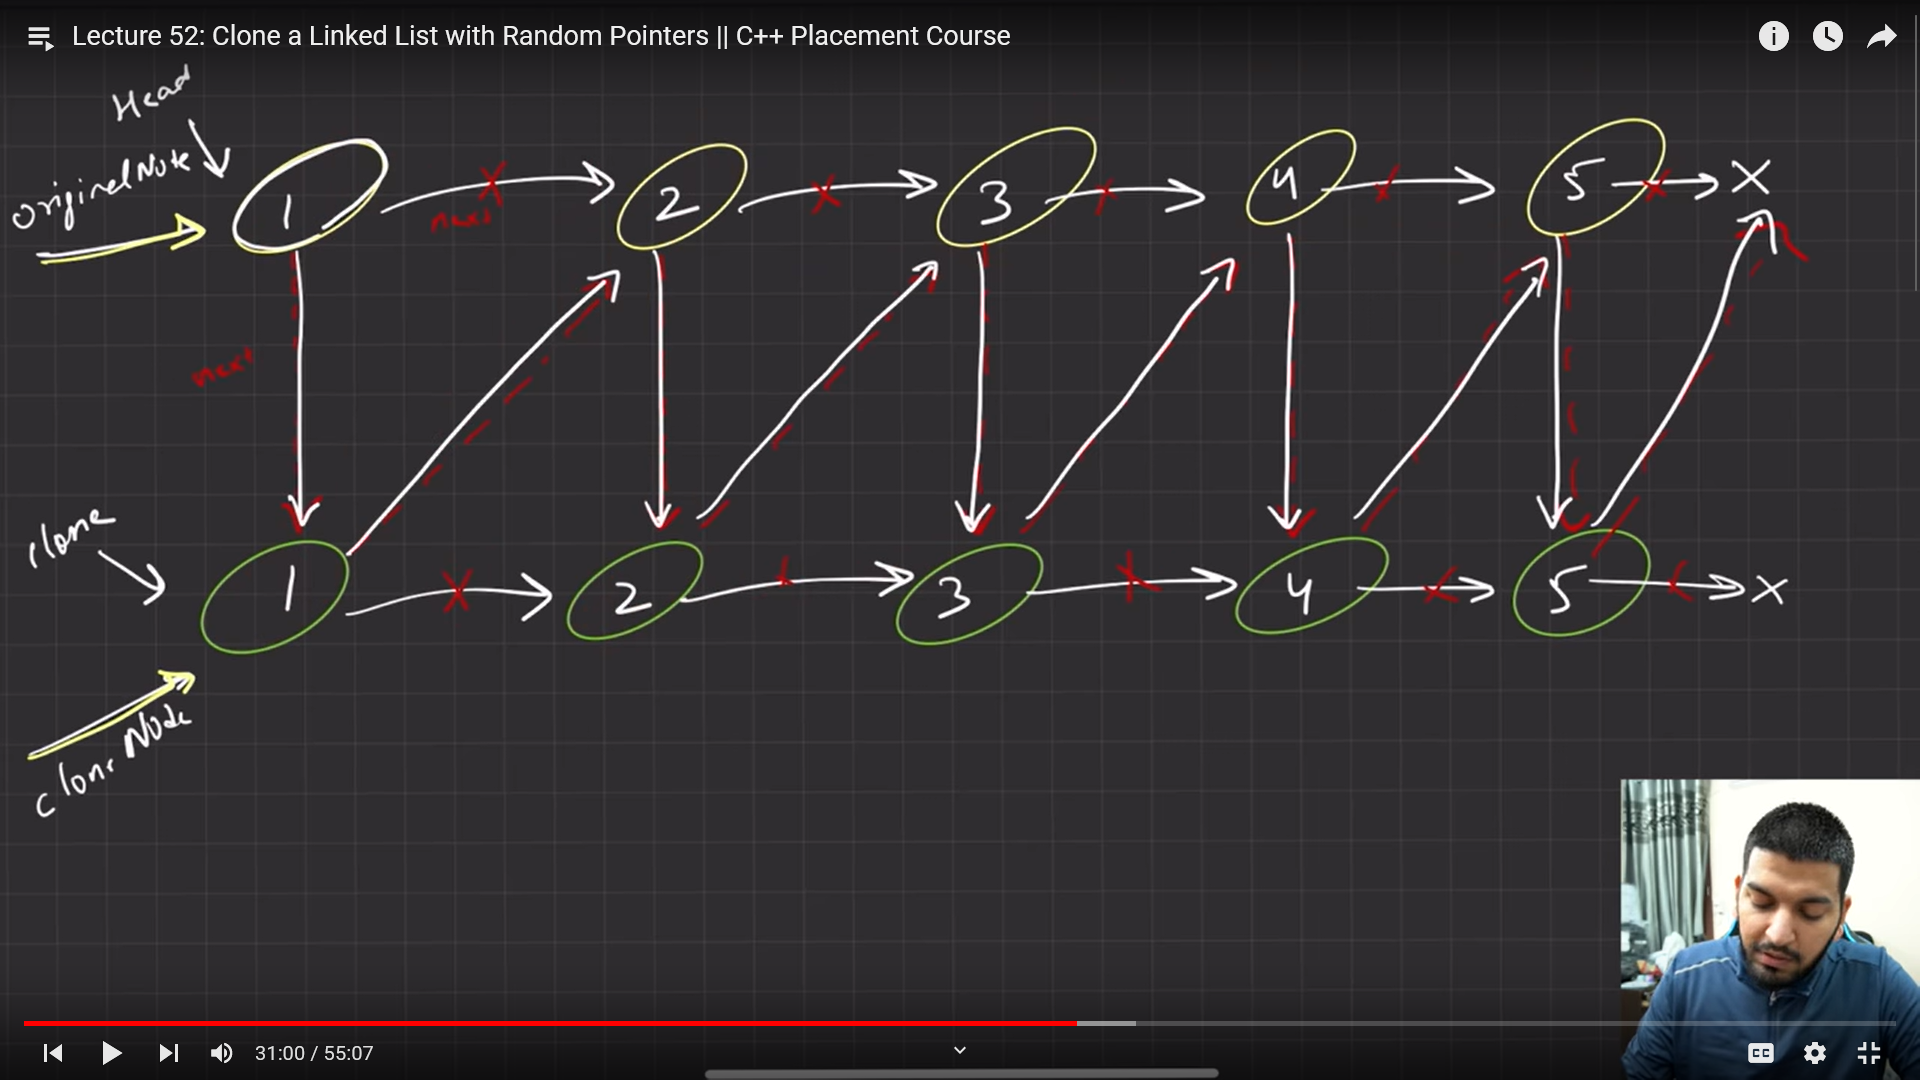 Lecture 52: Clone a Linked List with Random Pointers || C++ Placement Course
Head
originalNode
1 2 3 4 5 X
next
next
clone
1 2 3 4 5 X
cloneNode
31:00 / 55:07
CC